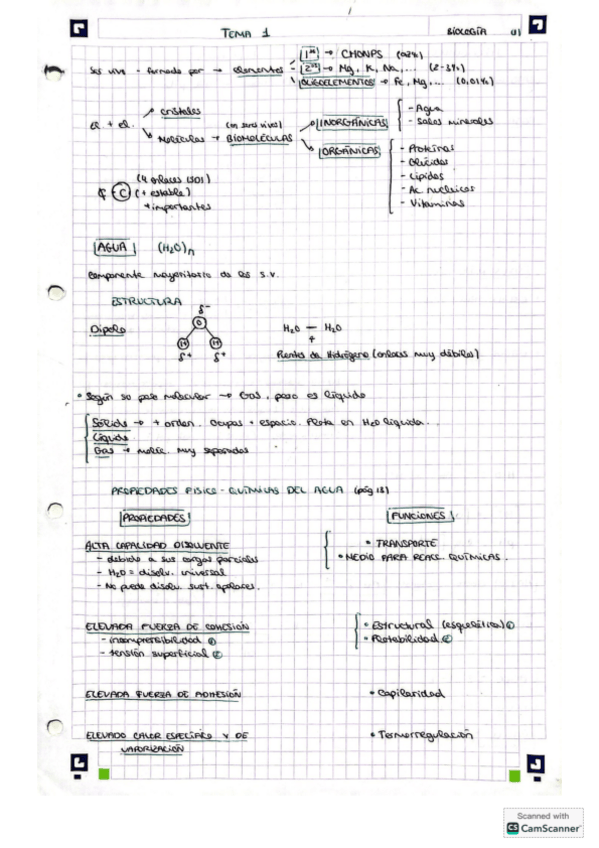 TEMA 1
BIOLOGÍA 01
Ser vivo - formado por → elementos
1os → CHONPS
2os → Mg, K, Na, ... (2-3%)
OLIGOELEMENTOS → Fe, Mg, ... (0,01%)
el. + el.
Cristales
Moléculas → BIOMOLÉCULAS
(en seres vivos)
INORGÁNICAS
- Agua
- Sales minerales
ORGÁNICAS
- Proteínas
- Glúcidos
- Lípidos
- Ac. nucleicos
- Vitaminas
C
(+ estable)
+ importantes
AGUA (H2O)n
Componente mayoritario de los s.v.
ESTRUCTURA
Dipolo
δ-
O
H H
δ+ δ+
H2O — H2O
+
Puentes de Hidrógeno (enlaces muy débiles)
• Según su peso molecular → Gas, pero es líquido
Sólido → + orden. Ocupa + espacio. Flota en H2O líquida.
Líquido
Gas → moléc. muy separadas
PROPIEDADES FISICO-QUÍMICAS DEL AGUA (pág 13)
PROPIEDADES
FUNCIONES
ALTA CAPACIDAD DISOLVENTE
- debido a sus cargas parciales
- H2O = disolv. universal
- No puede disolv. sust. apolares.
• TRANSPORTE
• MEDIO PARA REACC. QUÍMICAS.
ELEVADA FUERZA DE COHESIÓN
- incomprensibilidad ①
- tensión superficial ②
• Estructural (esquelética) ①
• Flotabilidad ②
ELEVADA FUERZA DE ADHESIÓN
• Capilaridad
ELEVADO CALOR ESPECÍFICO Y DE
VAPORIZACIÓN
• Termorregulación
Scanned with
CS CamScanner